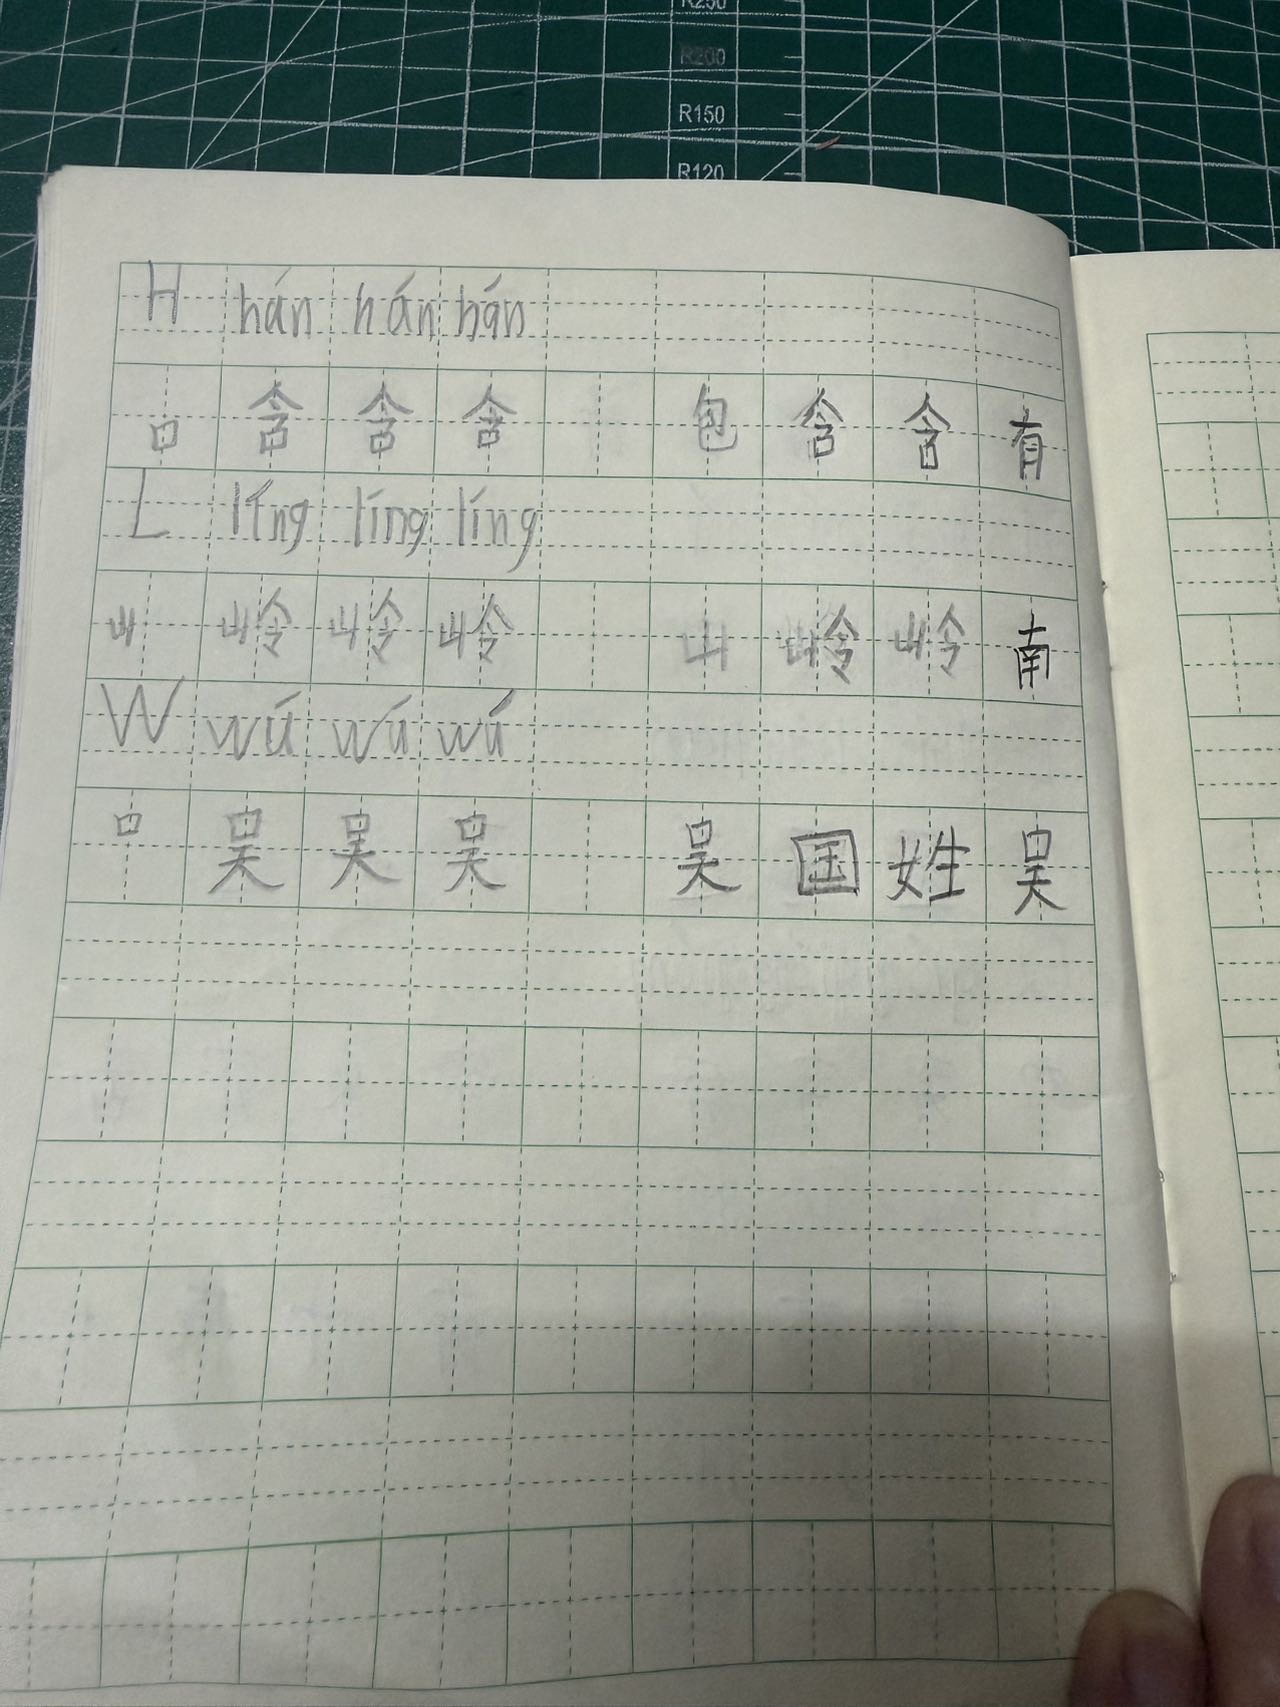 R250
R200
R150
R120
H hán hán hán
口 含 含 含 包 含 含 有
L líng líng líng
山 岭 岭 岭 山 岭 岭 南
W wú wú wú
口 吴 吴 吴 吴 国 姓 吴